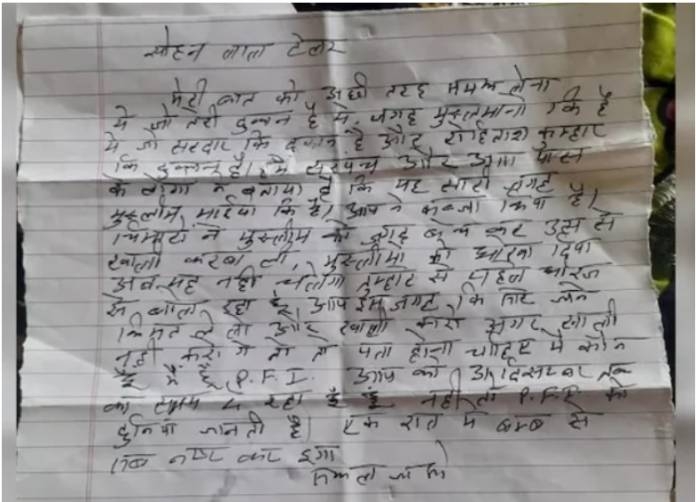 सोहन लाल टेलर
मेरी बात को अछी तरह समझ लेना
ये जो तेरी दुकान है ये जगह मुस्लमानो कि है
ये जो सरदार कि दुकान है और रोहिताश कुम्हार
कि दुकान है। हमे सरपन्च और आस पास
के लोगो ने बताया है कि यह सारी जगह
मुस्लीम भाईयो कि है। आप ने कब्जा किया है।
ने मुस्लीम को कर उस से
खाली करवा ली, मुस्लीमो को धोखा दिया
अब यह नही चलेगा तुम्हारे से पहले
से बोल रहा हु आप इस जगह कि
किमत ले लो और खाली करो अगर खाली
नही करो गे तो पता होना चाहिए मै कौन
हुँ मै हुँ P.F.I. आप को तक
का टाइम दे रहा हुँ नही तो P.F.I. को
दुनिया जानती है। एक रात मे बम्ब से
सब नष्ट कर दुंगा